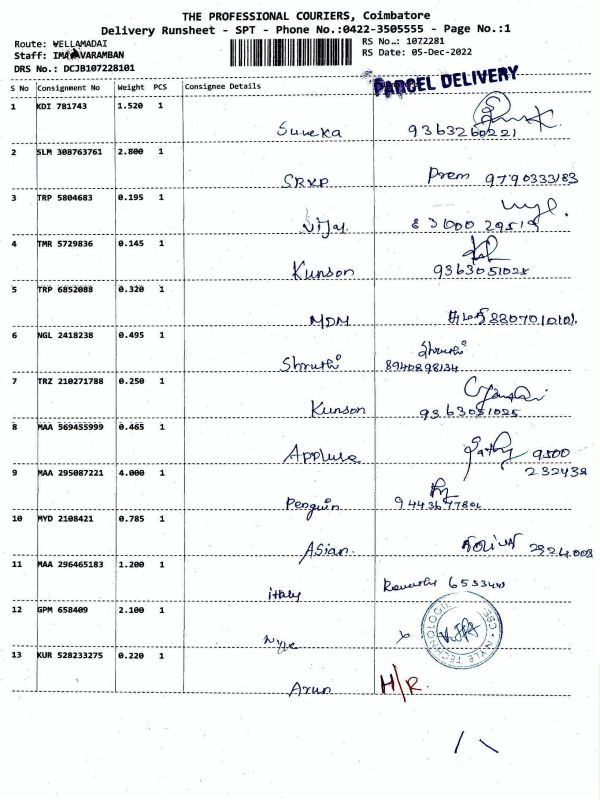 THE PROFESSIONAL COURIERS, Coimbatore
Delivery Runsheet - SPT - Phone No.:0422-3505555 - Page No.:1
Route: VELLAMADAI
RS No.: 1072281
Staff: IMAYAVARAMBAN
RS Date: 05-Dec-2022
DRS No.: DCJB107228101
PARCEL DELIVERY
S No Consignment No Weight PCS Consignee Details
1 KDI 781743 1.520 1
Suveka 9363260221
2 SLM 308763761 2.800 1
SRKP Prem 9790333183
3 TRP 5804683 0.195 1
Vijay
4 TMR 5729836 0.145 1
Kunson 9363051025
5 TRP 6852088 0.320 1
MDM
6 NGL 2418238 0.495 1
Shruthi Shruthi
8940898134
7 TRZ 210271788 0.250 1
Kunson 9363051025
8 MAA 569455999 0.465 1
Applure Sathy 9500
232438
9 MAA 295087221 4.000 1
Penguin
10 MYD 2108421 0.785 1
Asian
11 MAA 296465183 1.200 1
italy
12 GPM 658409 2.100 1
Nyle
NYLE TECHNOLOGIES CBE
13 KUR 528233275 0.220 1
Arun H/R.